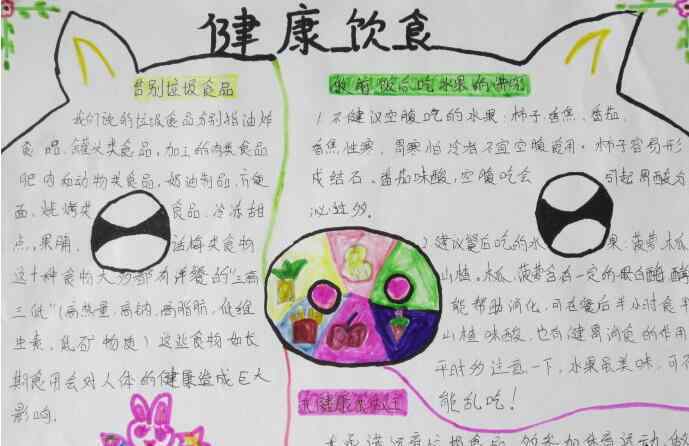 健康饮食
告别垃圾食品
我们说的垃圾食品分别指油炸
食品、罐头类食品,加工的肉类食品
肥肉和动物类食品,奶油制品、方便
面、烧烤类食品、冷冻甜
点、果脯、话梅类食物
这十种食物大多都有洋餐的“三高
三低”(高热量、高钠、高脂肪、低维
生素、低矿物质)这些食物如长
期食用会对人体的健康造成巨大
影响.
饭前饭后吃水果的讲究
1.不建议空腹吃的水果:柿子、香蕉、番茄、
香蕉性寒,胃寒怕冷者不宜空腹食用。柿子容易形
成结石、番茄味酸,空腹吃会引起胃酸分
泌过多.
2.建议餐后吃的水果:菠萝、木瓜
山楂.木瓜、菠萝含有一定的蛋白酶,酶
能帮助消化,可在餐后半小时食
山楂味酸,也有健胃消食的作用
平时多注意一下,水果虽美味,可不
能乱吃!
健康